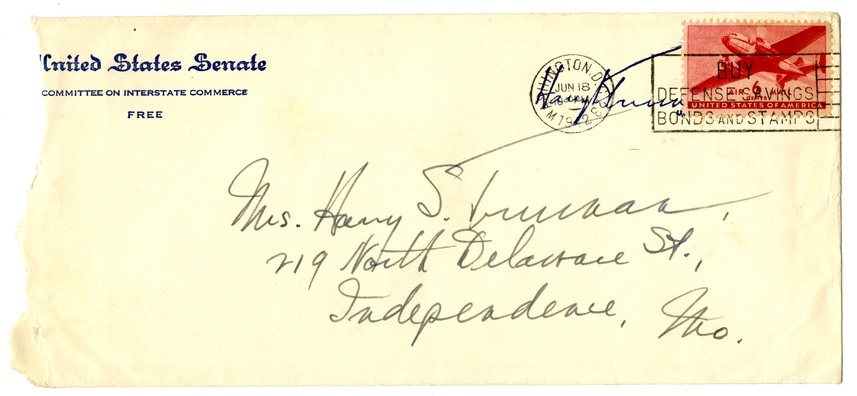 United States Senate
COMMITTEE ON INTERSTATE COMMERCE
FREE
WASHINGTON, D.C.
JUN 18
1942
BUY
DEFENSE SAVINGS
BONDS AND STAMPS
AIR MAIL
UNITED STATES OF AMERICA
Mrs. Harry S. Truman,
219 North Delaware St.,
Independence, Mo.